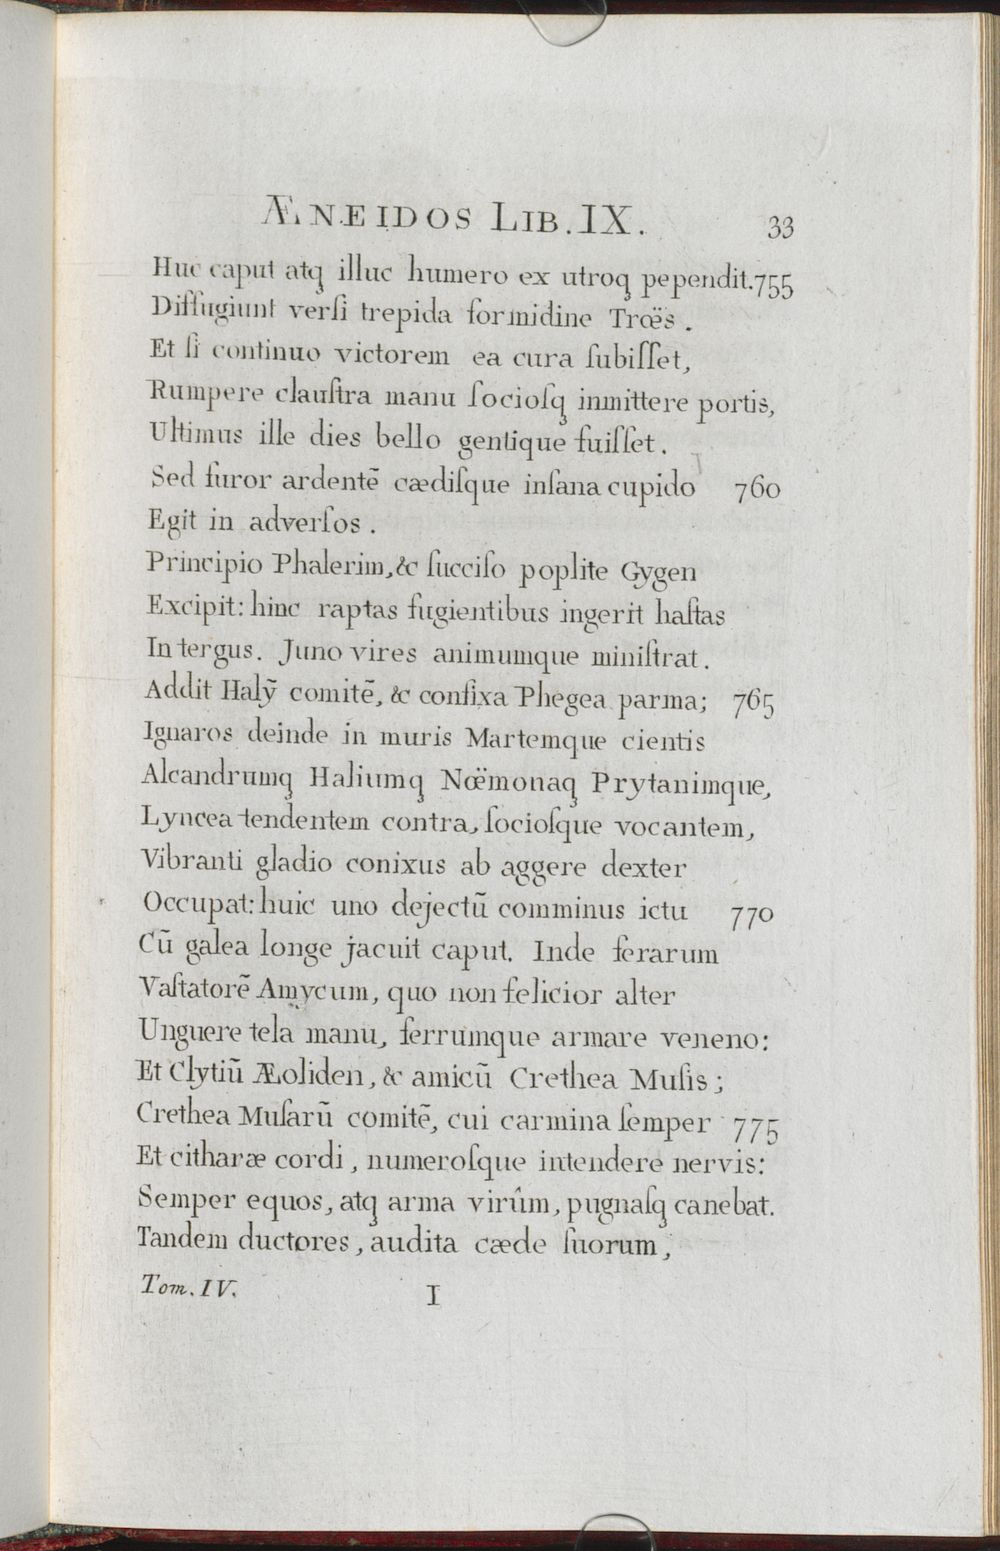 ÆNEIDOS LIB. IX. 33
Huc caput atq̨ illuc humero ex utroq̨ pependit. 755
Diffugiunt verſi trepida formidine Trœ̈s.
Et ſi continuo victorem ea cura ſubiſſet,
Rumpere clauſtra manu ſocioſq̨ inmittere portis,
Ultimus ille dies bello gentique fuiſſet.
Sed furor ardentẽ cædiſque inſana cupido 760
Egit in adverſos.
Principio Phalerim, & ſucciſo poplite Gygen
Excipit: hinc raptas fugientibus ingerit haſtas
In tergus. Juno vires animumque miniſtrat.
Addit Halỹ comitẽ, & confixa Phegea parma; 765
Ignaros deinde in muris Martemque cientis
Alcandrumq̨ Haliumq̨ Nœ̈monaq̨ Prytanimque,
Lyncea tendentem contra, ſocioſque vocantem,
Vibranti gladio conixus ab aggere dexter
Occupat: huic uno dejectũ comminus ictu 770
Cũ galea longe jacuit caput. Inde ferarum
Vaſtatorẽ Amycum, quo non felicior alter
Unguere tela manu, ferrumque armare veneno:
Et Clytiũ Æoliden, & amicũ Crethea Muſis;
Crethea Muſarũ comitẽ, cui carmina ſemper 775
Et citharæ cordi, numeroſque intendere nervis:
Semper equos, atq̨ arma virûm, pugnaſq̨ canebat.
Tandem ductores, audita cæde ſuorum,
Tom. IV. I